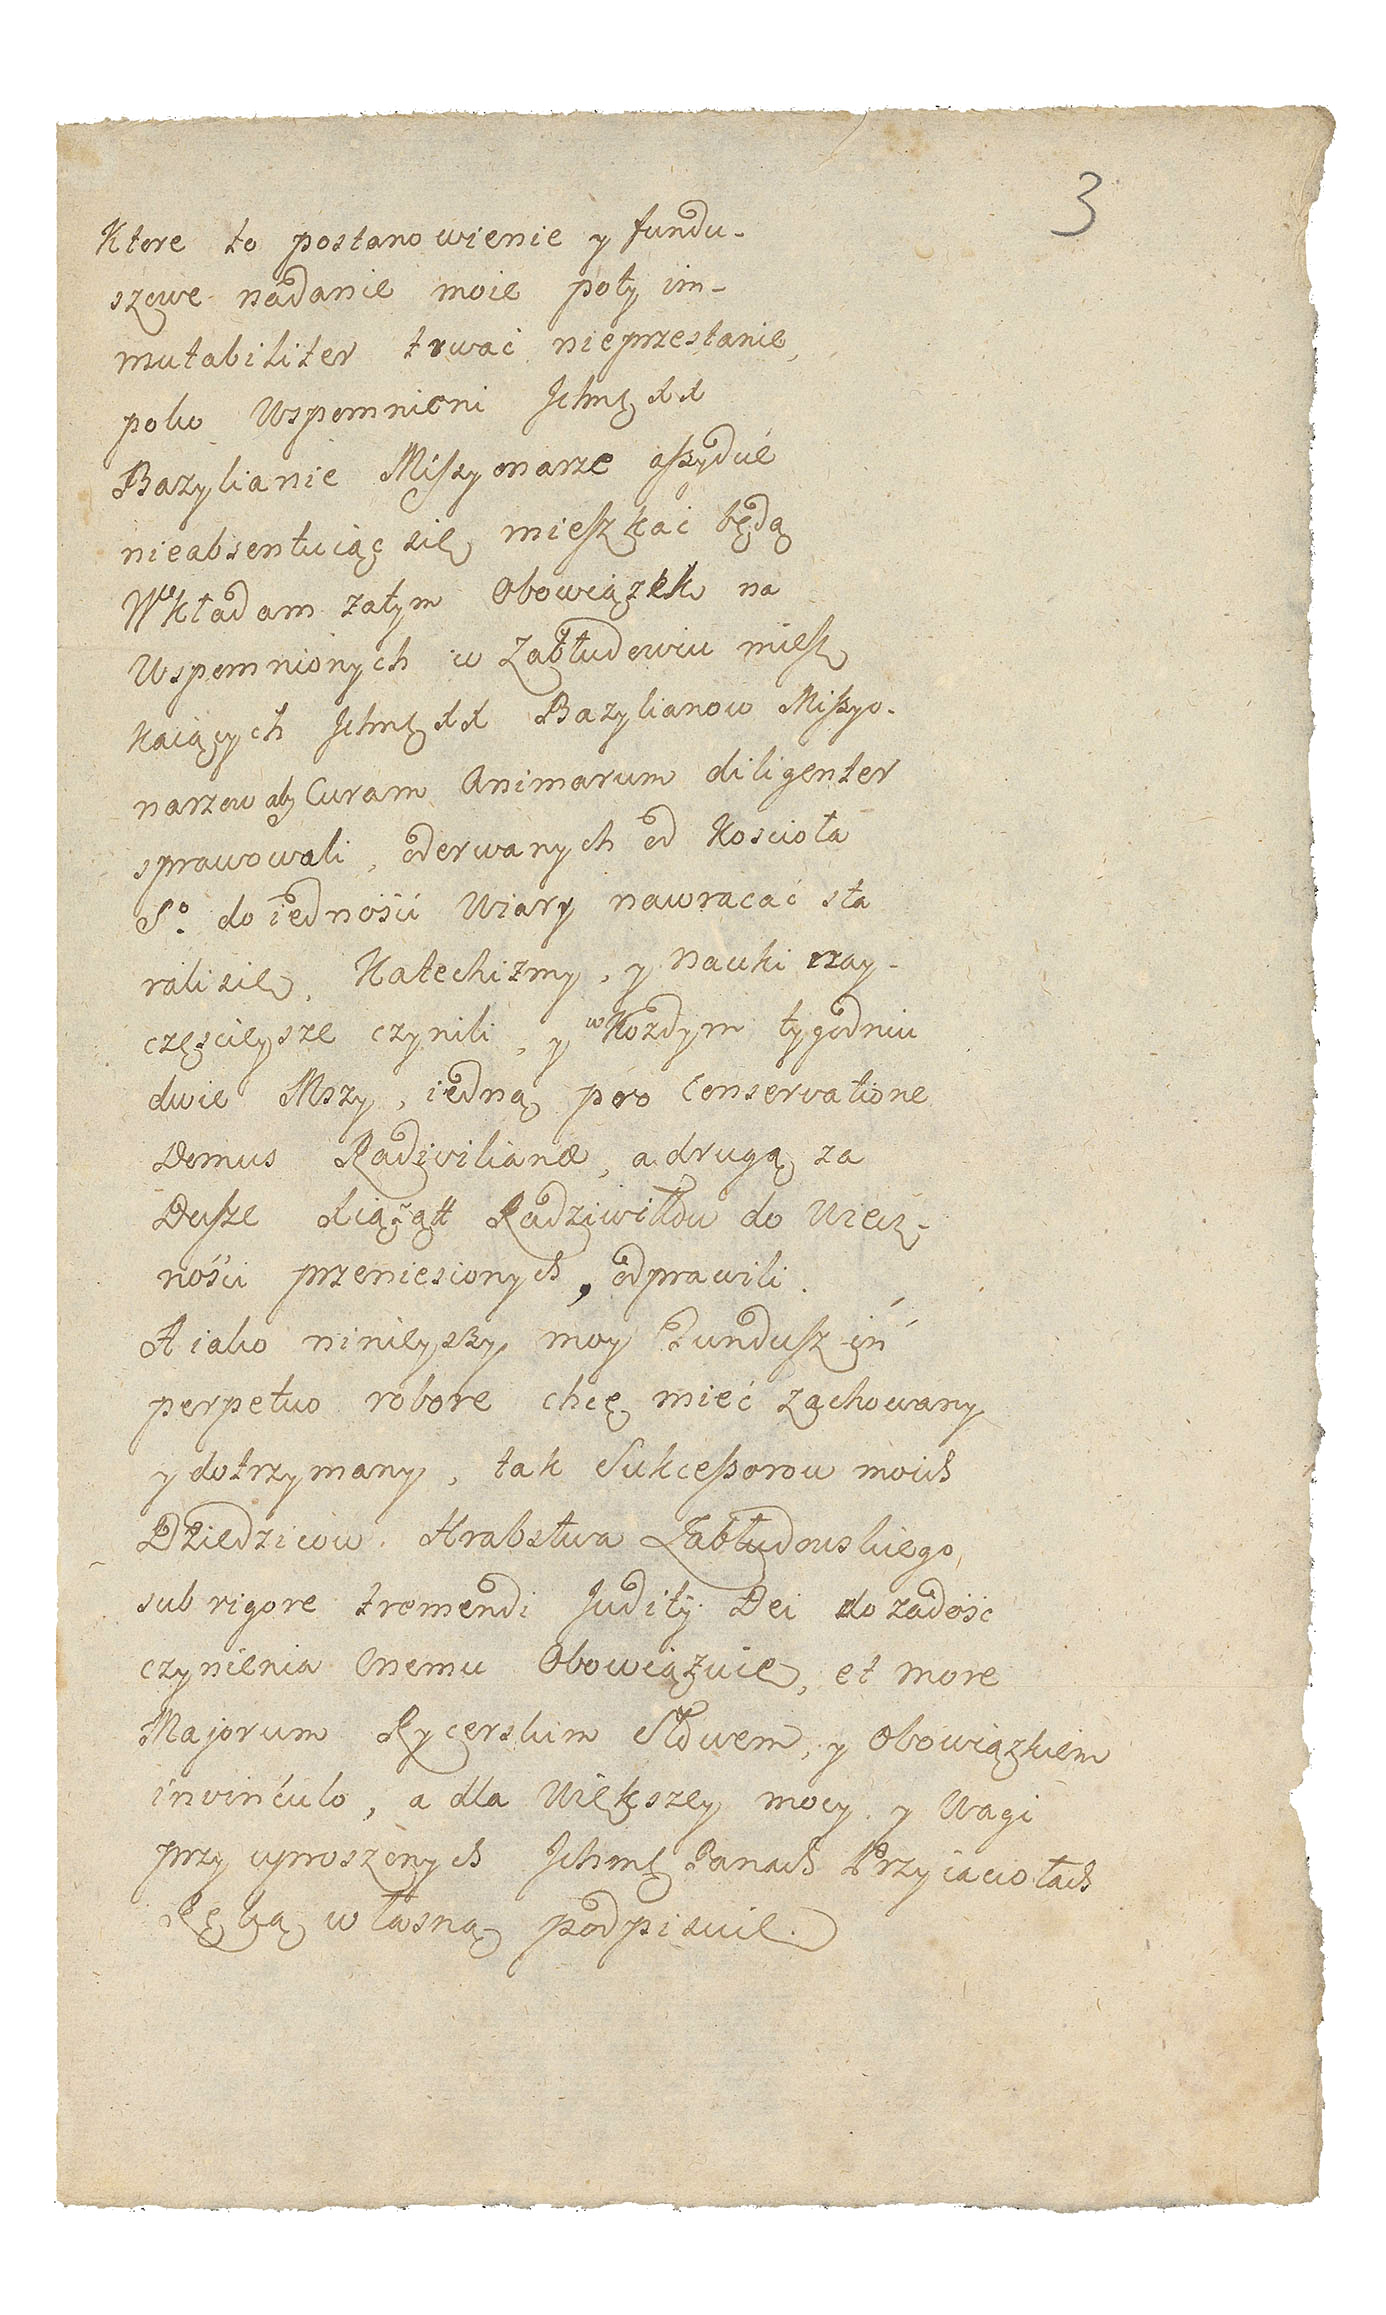 3
Ktore to postanowienie y fundu-
szowe nadanie moie poty im-
mutabiliter trwać nieprzestanie,
poko Wspomnioni Ichmę XX
Bazylianie Missyonarze assyduè
nieabsentuiąc się mieszkać będą
Wkładam zatym Obowiązek na
Wspomnionych w Zabłudowiu miesz
kaiących Ichmę XX Bazylianow Missyo-
narzow aby Curam Animarum diligenter
sprawowali, oderwanych od Koscioła
So. do iednośći Wiary nawracać sta
rali się, Katechizmy, y Nauki nay-
częsciey sze czynili, y w Kozdym tygodniu
dwie Mszy, iedną pro Conservatione
Domus Radivilianæ, a drugą za
Dusze Xiążąt Radziwiłłow do Wiecz-
nośći przeniesionych, odprawili.
A iako ninieyszy moy Fundusz in
perpetuo robore chcę mieć zachowany
y dotrzymany, tak Sukcessorow moich
Dziedzicow Hrabstwa Zabłudowskiego,
sub rigore tremendi Juditÿ Dei do zadość
czynienia Onemu Obowiązuię, et more
Majorum Rycerskim Słowem, y Obowiązkiem
invinćulo, a dla Większey mocy y Wagi
przy uproszonych Ichmę Panach Przyiaciołach
Ręką własną podpisuię.